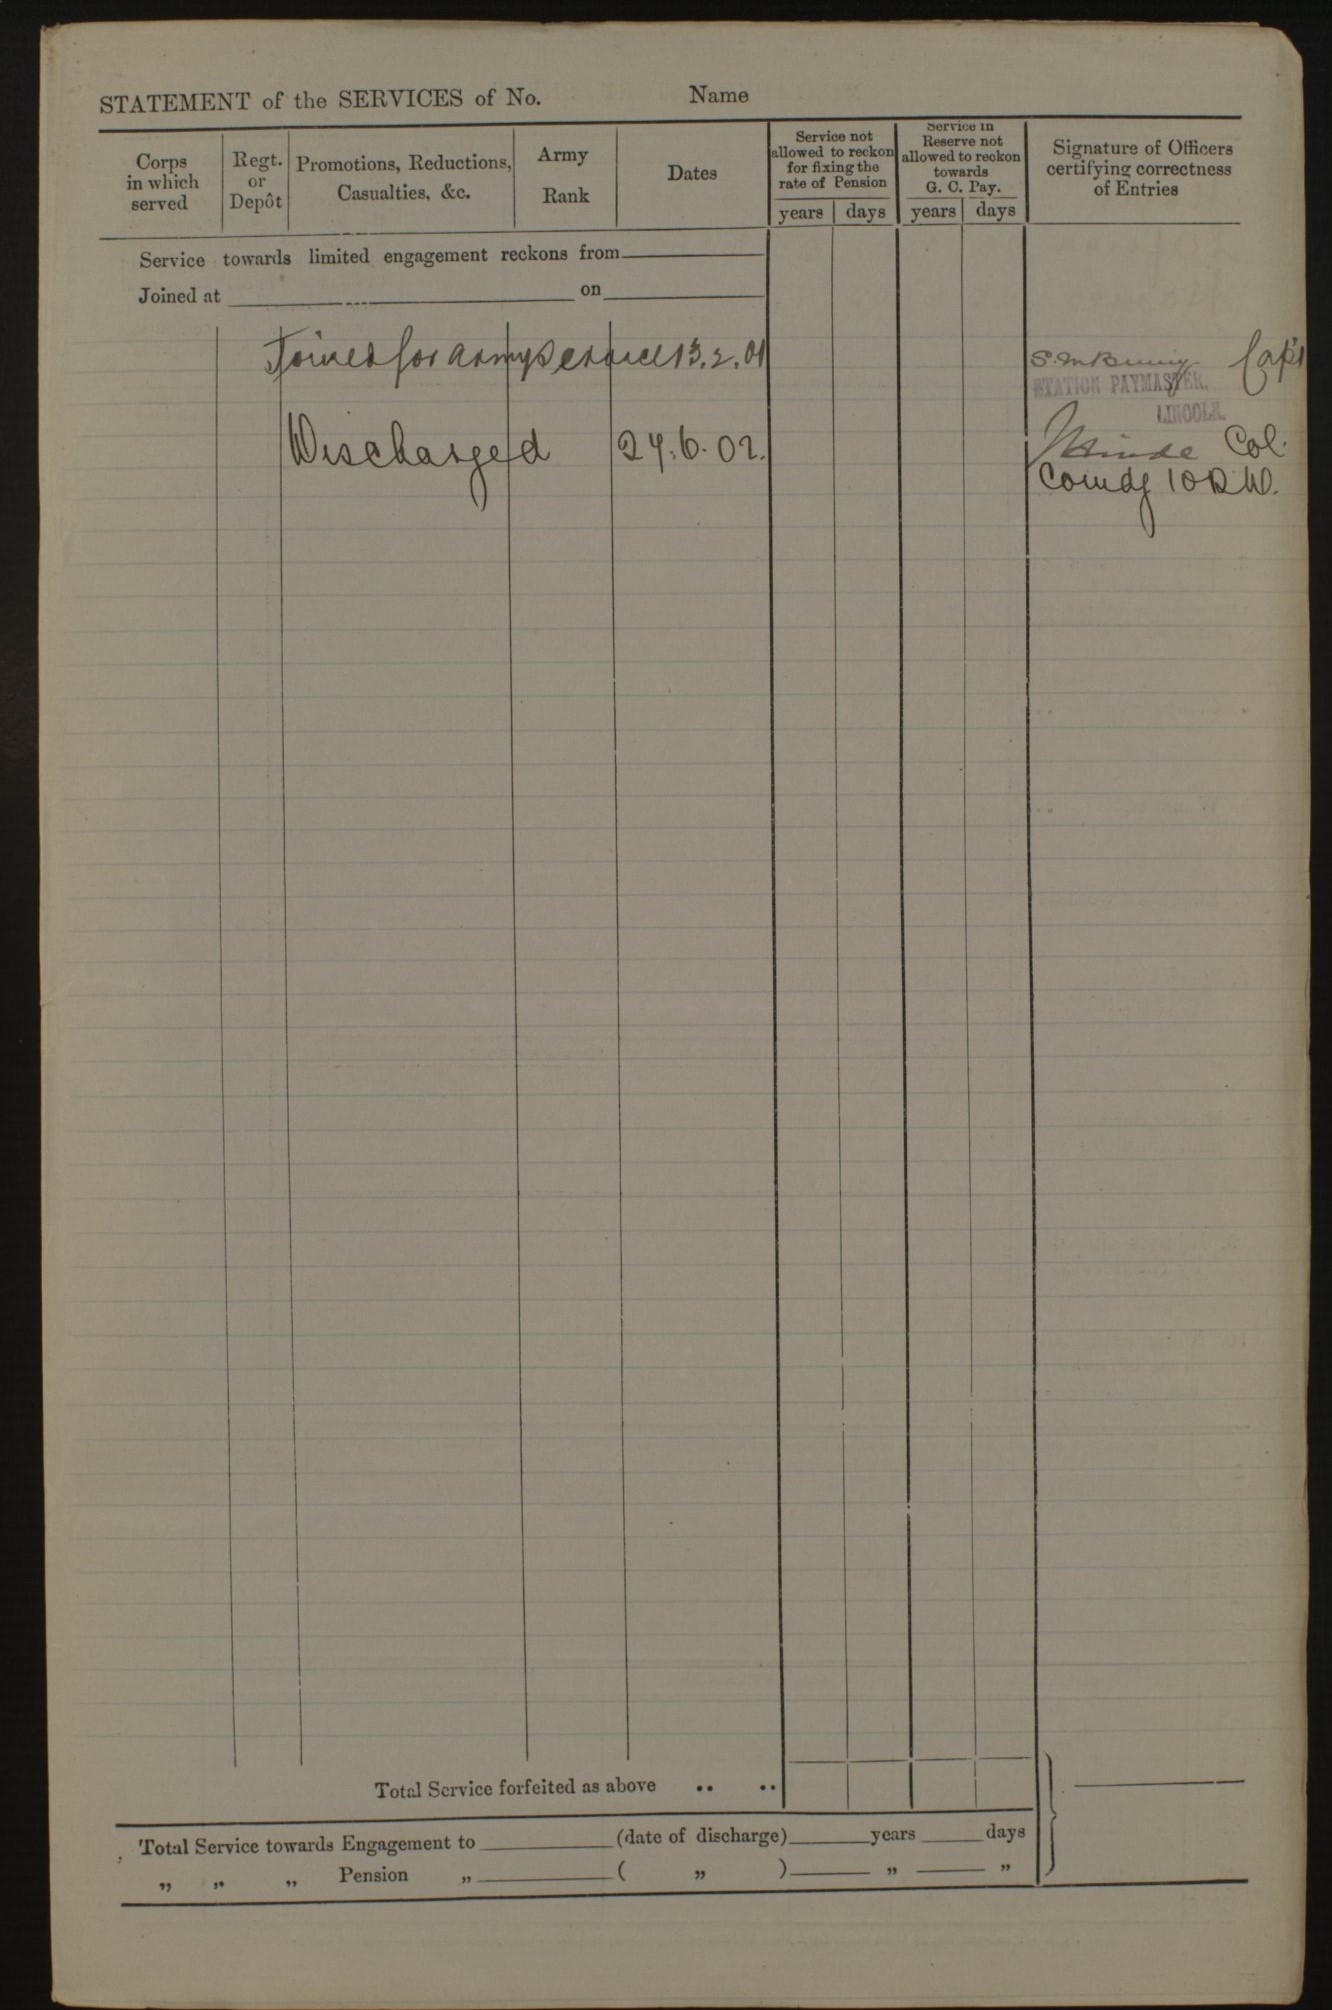 STATEMENT of the SERVICES of No. Name
Corps in which served
Regt. or Depôt
Promotions, Reductions, Casualties, &c.
Army Rank
Dates
Service not allowed to reckon for fixing the rate of Pension
years days
Service in Reserve not allowed to reckon towards G. C. Pay.
years days
Signature of Officers certifying correctness of Entries
Service towards limited engagement reckons from
Joined at on
Joined for army Service 13.2.01
Capt
STATION PAYMASTER,
LINCOLN.
Discharged 24.6.02.
Col.
Comdg 10 R.D.
Total Service forfeited as above .. ..
Total Service towards Engagement to (date of discharge) years days
„ „ „ Pension „ ( „ ) „ „